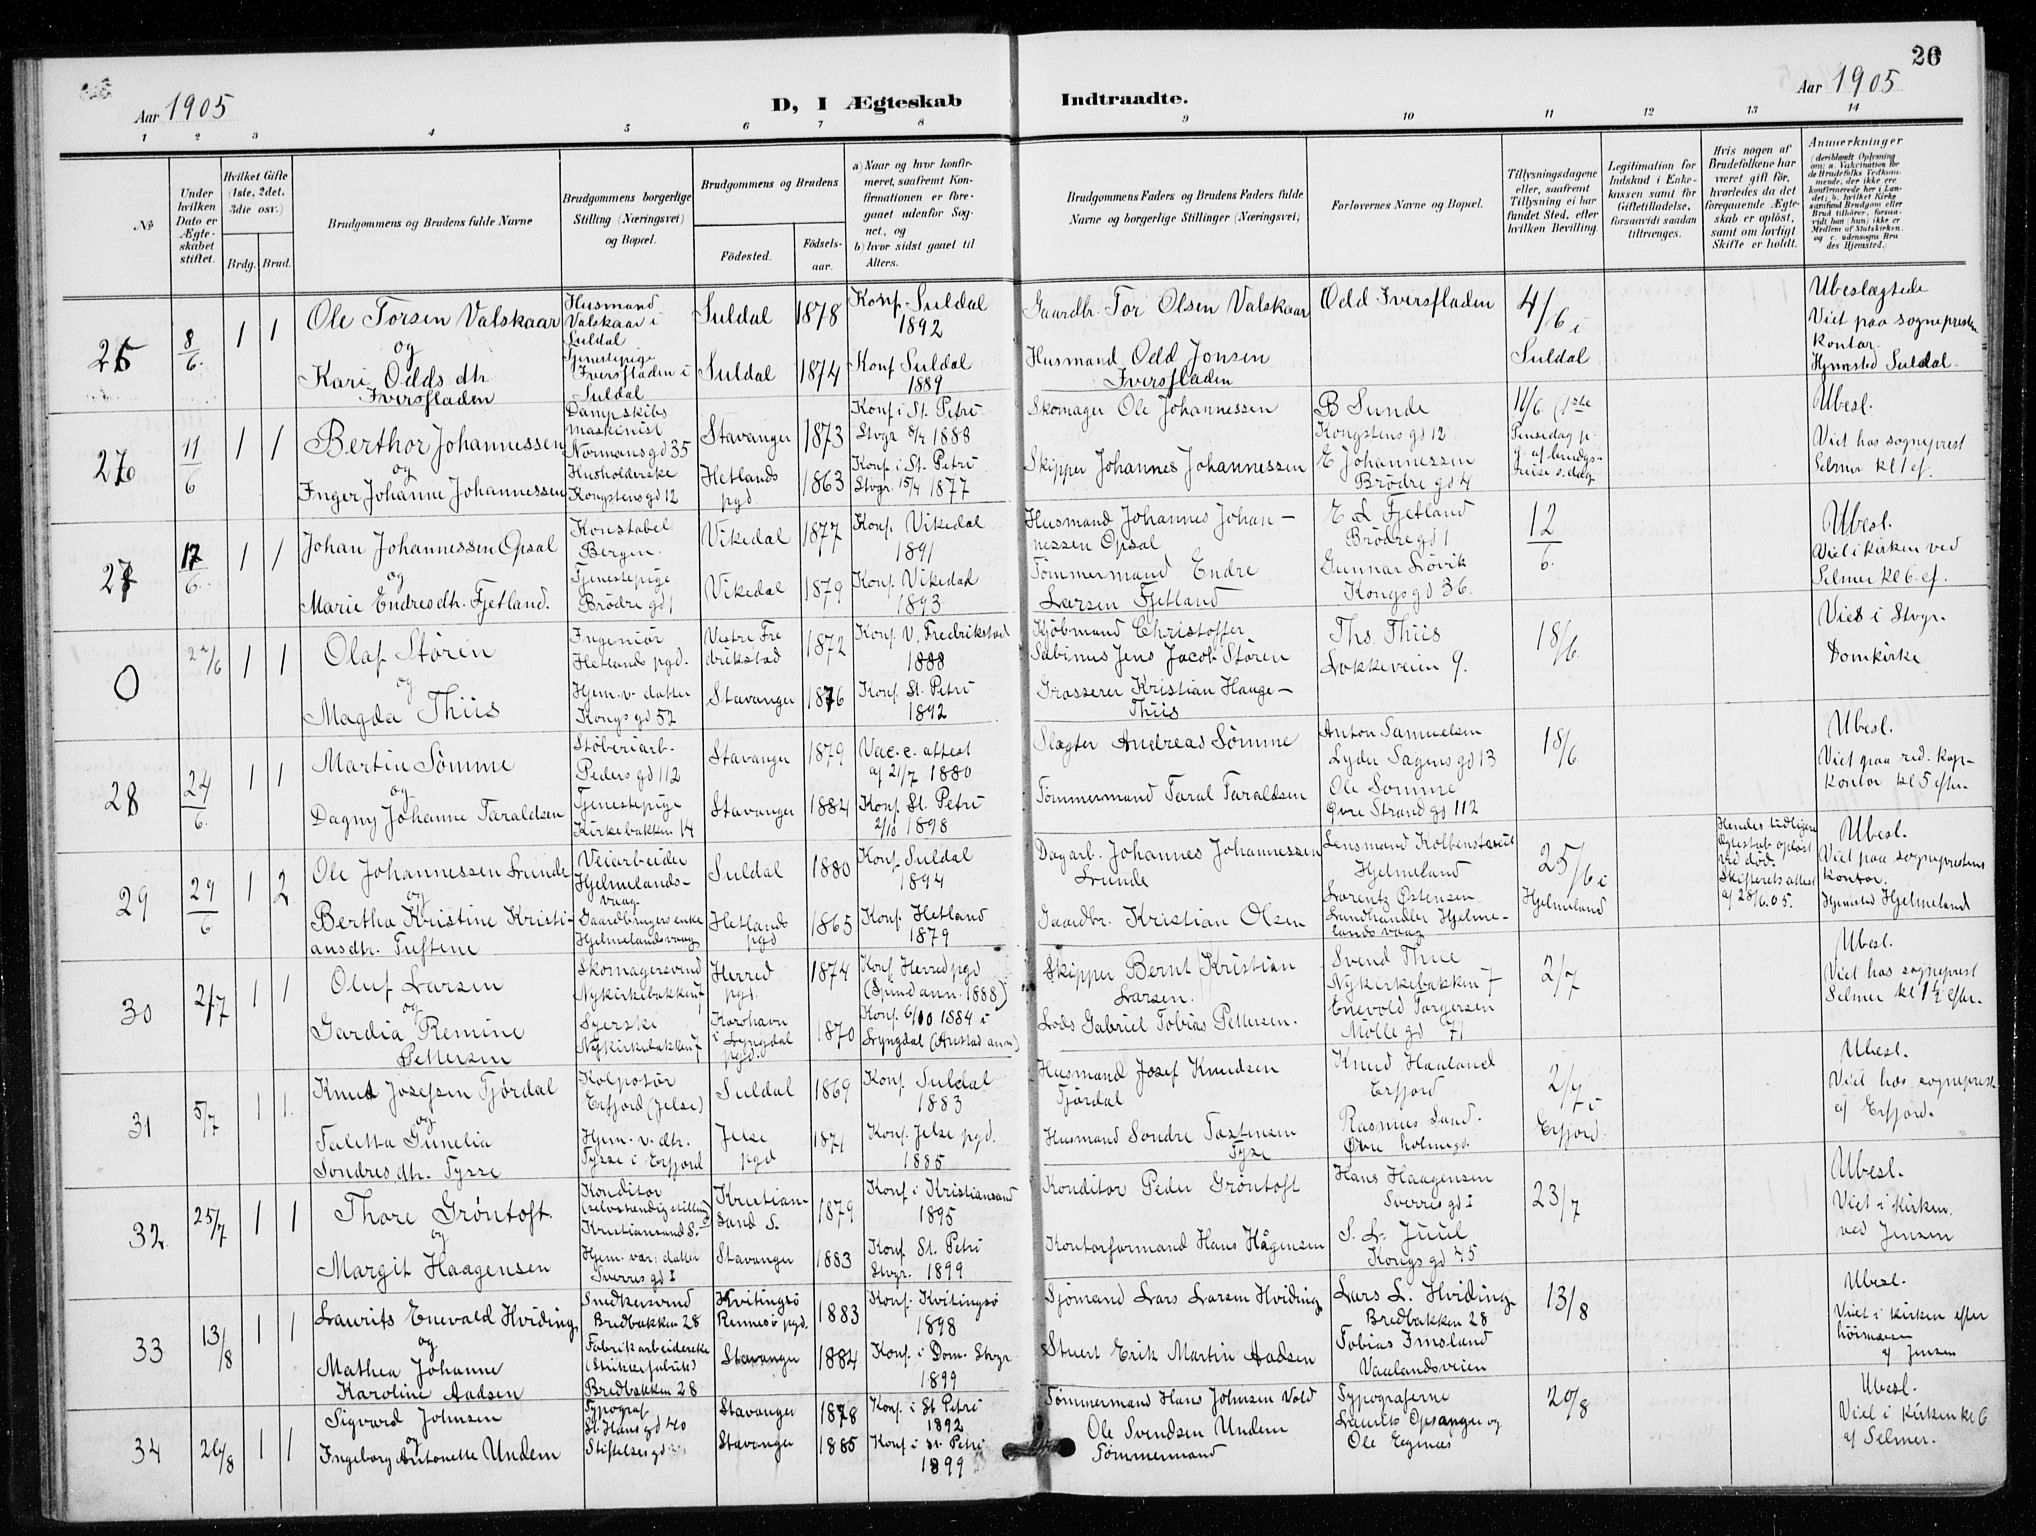 Aar 1905
D, I Ægteskab
Indtraadte.
Aar 1905
26
1 2 3 4 5 6 7 8 9 10 11 12 13 14
No
Under hvilken Dato er Ægteskabet stiftet.
Hvilket Gifte (1ste, 2det, 3die osv.)
Brdg. Brud.
Brudgommens og Brudens fulde Navne
Brudgommens borgerlige Stilling (Næringsvei) og Bopæl.
Brudgommens og Brudens
Födested.
Födselsaar.
a) Naar og hvor konfirmeret, saafremt Konfirmationen er foregaaet udenfor Sognet, og
b) hvor sidst gaaet til Alters.
Brudgommens Faders og Brudens Faders fulde Navne og borgerlige Stillinger (Næringsvei),
Forlovernes Navne og Bopæl.
Tillysningsdagene eller, saafremt Tillysning ei har fundet Sted, efter hvilken Bevilling.
Legitimation for Indskud i Enkekassen samt for Giftetilladelse, forsaavidt saadan tiltrænges.
Hvis nogen af Brudefolkene har været gift för, hvorledes da det foregaaende Ægteskab er oplöst, samt om lovligt Skifte er holdt.
Anmærkninger
(deriblandt Oplysning om: a. Vakcination for de Brudefolks Vedkommende, der ikke ere konfirmerede her i Landet; b. hvilket Kirkesamfund Brudgom eller Brud tilhörer, forsaavidt han (hun) ikke er Medlem af Statskirken, og c. udensogns Brudes Hjemsted.)
8/6 1 1
Ole Torsen Valskaar
og
Kari Odds dtr.
Iversfladen
Husmand
Valskaar i
Suldal
Tjenestepige
Iversfladen i
Suldal
Suldal 1878
Suldal 1874
Konf. Suldal
1892
Konf. Suldal
1889
Gaardbr. Tor Olsen Valskaar
Husmand Odd Jonsen
Iversfladen
Odd Iversfladen
4/6 i
Suldal
Ubeslægtede
Viet paa sogneprestens
kontor
Hjemsted Suldal
11/6 1 1
Berthor Johannessen
og
Inger Johanne Johannessen
Dampskibs
maskinist
Normansgd 35
Husholderske
Kongstensgd 12
Stavanger 1873
Hetlands
pgd. 1863
Konf. i St. Petri
Stvgr. 8/4 1888
Konf. i St. Petri
Stvgr. 15/4 1877
Skomager Ole Johannessen
Skipper Johannes Johannessen
B Sunde
Kongstensgd 12
E Johannessen
Brödregd 4
11/6 (1ste
Ubesl.
Viet hos sogneprest
Selmer kl 1 ef.
17/6 1 1
Johan Johannessen Opsal
og
Marie Endresdtr. Fjetland.
Konstabel
Bergen.
Tjenestepige
Brödregd 1
Vikedal 1877
Vikedal 1879
Konf. Vikedal
1891
Konf. Vikedal
1893
Husmand Johannes Johan-
nessen Opsal
Tömmermand Endre
Larsen Fjetland
E L Fjetland
Brödregd 1
Gunnar Lövik
Kongsgd 36.
12/6.
Ubesl.
Viet i kirken ved
Selmer kl 6. ef.
O 1 1
Olaf Stören
og
Magda Thiis
Ingeniör
Hetlands pgd.
Hjem. v. datter
Kongsgd 52
Vestre Fre
drikstad 1872
Stavanger 1876
Konf. V. Fredrikstad
1888
Konf. St. Petri
1892
Kjöbmand Christoffer
Sabinus Jens Jacob Stören
Grosserer Kristian Hauge-
Thiis
Ths. Thiis
Lökkeveien 9.
18/6.
Viet i Stvgr.
Domkirke
28 24/6. 1 1
Martin Sömme
og
Dagny Johanne Taraldsen
Stöberiarb.
Pedersgd 112
Tjenestepige
Kirkebakken 14
Stavanger 1879
Stavanger 1884
Vac. c. attest
af 21/7 1880
Konf. St. Petri
2/10 1898
Slagter Andreas Sömme
Tömmermand Taral Taraldsen
Anton Samuelsen
Lyder Sagensgd 13
Ole Sömme
Övre Strandgd 112
18/6
Ubesl.
Viet paa red. kap-
kontor kl 5 efter.
29 29/6 1 2
Ole Johannessen Lunde
og
Bertha Kristine Kristi-
ansdtr. Tuftene
Veiarbeider
Hjelmelands-
vaag
Gaardbrugerenke
Hjelmelandsvaag
Suldal 1880
Hetlands
pgd 1865
Konf. Suldal
1894
Konf. Hetland
1879
Dagarb. Johannes Johannessen
Lunde
Gaardbr. Kristian Olsen
Lensmand Kolbenstvedt
Hjelmeland
Lorentz Östensen
Landhandler Hjelme-
landsvaag
25/6 i
Hjelmeland
Hendes tidligere
Ægteskab oplöst
ved död.
Skifterets attest
af 28/6.05.
Ubesl.
Viet paa sogneprestens
kontor.
Hjemsted Hjelmeland
30 2/7 1 1
Oluf Larsen
og
Gerdia Remine
Pettersen
Skomagersvend
Nykirkebakken 7
Syerske
Nykirkebakken 7
Herred
pgd. 1874
Korshavn
i Lyngdal
pgd. 1870
Konf. Herred pgd
(Spind ann. 1888)
Konf. 6/10 1884 i
Lyngdal (Austad ann)
Skipper Bernt Kristian
Larsen.
Lods Gabriel Tobias Pettersen.
Svend Thue
Nykirkebakken 7
Enevold Torgersen
Möllegd 71
2/7
Ubesl.
Viet hos sogneprest
Selmer kl 1 1/2 efter.
31 5/7 1 1.
Knut Josefsen Tjördal
og
Taletta Gunelia
Sondresdtr. Tysse
Kolportör
Erfjord (Jelse)
Hjem. v. dtr.
Tysse i Erfjord
Suldal 1869
Jelse
pgd 1871
Konf. Suldal
1883
Konf. Jelse pgd.
1885
Husmand Josef Knudsen
Tjördal
Husmand Sondre Tostensen
Tysse
Knud Haaland
Erfjord
Rasmus Sand.
Övre holmegd.
2/7 i
Erfjord.
Ubesl.
Viet hos sogneprest
af Erfjord.
32. 25/7 1 1
Thore Gröntoft.
og
Margit Haagensen
Konditor
(selvstændig stilling)
Kristiansand S.
Hjem. vær. datter
Sverresgd I
Kristian-
sand S. 1879
Stavanger 1883
Konf. i Kristiansand
1895
Konf. St. Petri
Stvgr. 1899
Konditor Peder Gröntoft
Kontorformand Hans Hågensen
Hans Haagensen
Sverresgd I
S. L. Juul
Kongsgd 45
23/7
Ubesl.
Viet i kirken
ved Jensen
33 13/8 1 1
Laurits Enevald Hviding
og
Mathea Johanne
Karoline Aadsen
Snedkersvend
Bredbakken 28
Fabrikarbeiderske
Bredbakken 28
Kvitingsö
Rennesö pgd. 1883
Stavanger 1884
Konf. Kvitingsö
1898
Konf. i Dom. Stvgr.
1899
Sjömand Lars Larsen Hviding
Stuert Erik Martin Aadsen
Lars L. Hviding
Bredbakken 28
Tobias Imsland
Vaalandsveien
13/8
Ubesl.
Viet i kirken efter
höimesse
af Jensen
34 20/8 1 1
Sigvard Johnsen
og
Ingeborg Antonette Undem
Typograf
St. Hansgd 40
Stiftelsesgd
Stavanger 1878
Stavanger 1885
Konf. i St Petri
1892
Konf. i St. Petri
1899
Tömmermand Hans Johnsen Vold
Ole Svendsen Undem
Tömmermand
Typograferne
Laurits Opsanger og
Ole Eegenes
20/8
Ubesl.
Viet i kirken kl 6
af Selmer.